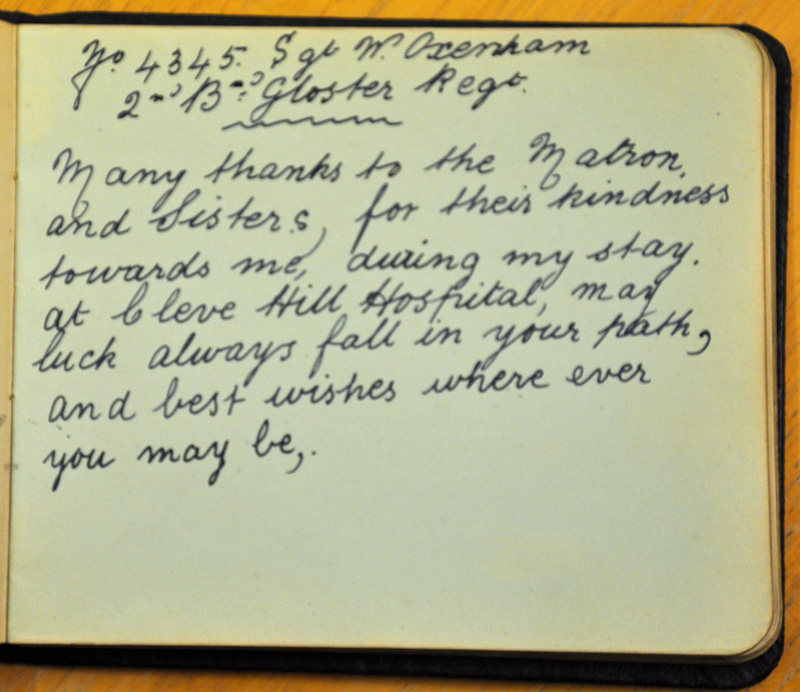 No 4345. Sgt W. Oxenham
2nd Bn. Gloster Regt.
Many thanks to the Matron,
and Sisters, for their kindness
towards me, during my stay.
at Cleve Hill Hospital, may
luck always fall in your path,
and best wishes where ever
you may be,.